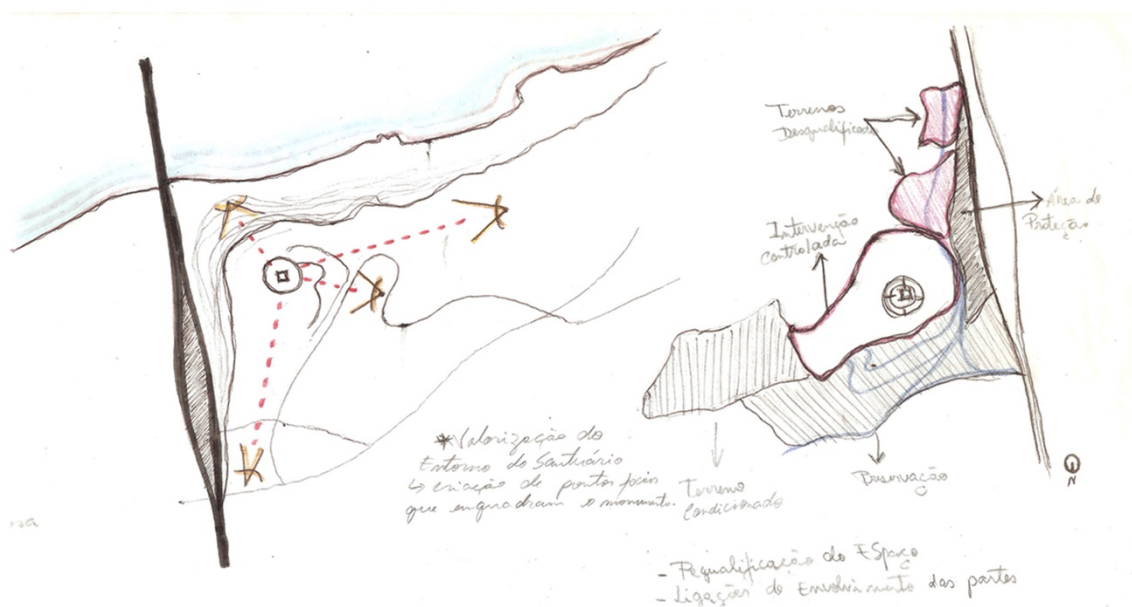 Terrenos
Desqualificados
Área de
Proteção
Intervenção
Controlada
*Valorização do
Entorno do Santuário
↳ criação de pontos focais
que enquadram o monumento.
Terreno
Condicionado
Preservação
N
- Requalificação do Espaço
- Ligações de Envolvimento das partes